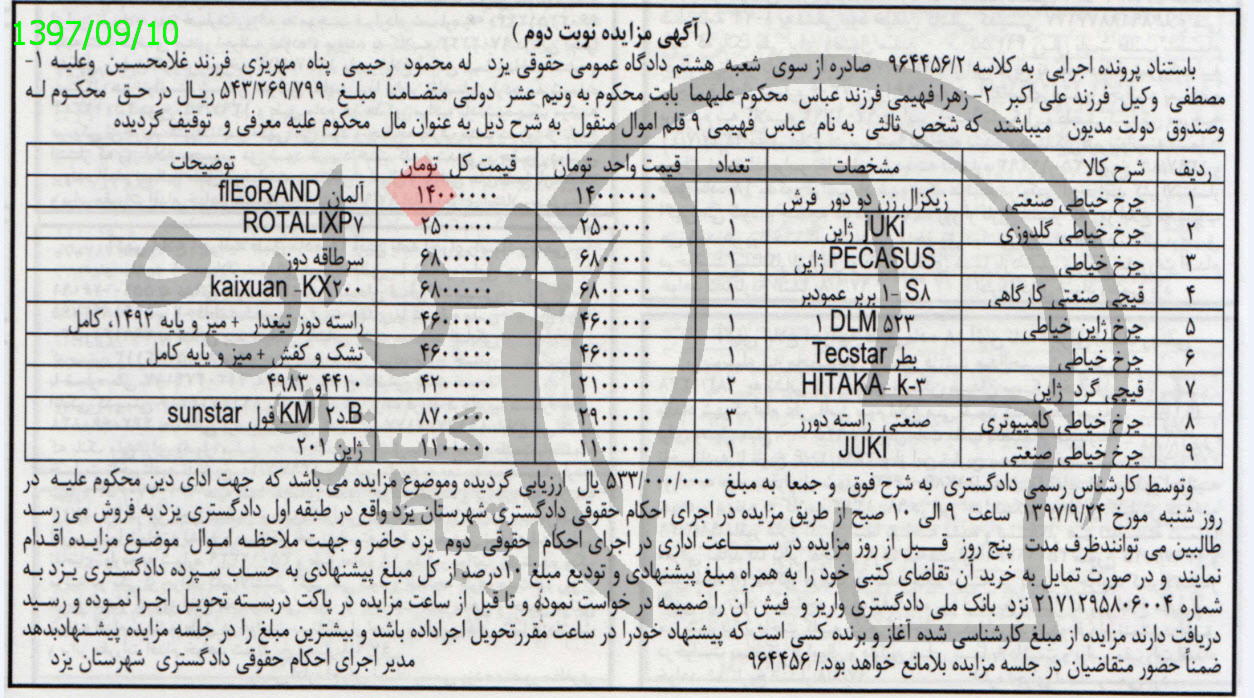 1397/09/10
( آگهی مزایده نوبت دوم )
باستناد پرونده اجرایی به کلاسه ۹۶۴۴۵۶/۲ صادره از سوی شعبه هشتم دادگاه عمومی حقوقی یزد له محمود رحیمی پناه مهریزی فرزند غلامحسین وعلیه ۱-
مصطفی وکیل فرزند علی اکبر ۲- زهرا فهیمی فرزند عباس محکوم علیهما بابت محکوم به ونیم عشر دولتی متضامنا مبلغ ۵۴۳/۲۶۹/۷۹۹ ریال در حق محکوم له
وصندوق دولت مدیون میباشند که شخص ثالثی به نام عباس فهیمی ۹ قلم اموال منقول به شرح ذیل به عنوان مال محکوم علیه معرفی و توقیف گردیده
ردیف شرح کالا مشخصات تعداد قیمت واحد تومان قیمت کل تومان توضیحات
۱ چرخ خیاطی صنعتی زیکزال زن دو دور فرش ۱ ۱۴۰۰۰۰۰۰ ۱۴۰۰۰۰۰۰ آلمان flEoRAND
۲ چرخ خیاطی گلدوزی jUKi ژاپن ۱ ۲۵۰۰۰۰۰ ۲۵۰۰۰۰۰ ROTALIXP۷
۳ چرخ خیاطی PECASUS ژاپن ۱ ۶۸۰۰۰۰۰ ۶۸۰۰۰۰۰ سرطاقه دوز
۴ قیچی صنعتی کارگاهی ۱- S۸ بربر عمودبر ۱ ۶۸۰۰۰۰۰ ۶۸۰۰۰۰۰ kaixuan -KX۲۰۰
۵ چرخ ژاپن خیاطی ۱ DLM ۵۲۳ ۱ ۴۶۰۰۰۰۰ ۴۶۰۰۰۰۰ راسته دوز تیغدار + میز و پایه ۱۴۹۲، کامل
۶ چرخ خیاطی بطر Tecstar ۱ ۴۶۰۰۰۰۰ ۴۶۰۰۰۰۰ تشک و کفش + میز و پایه کامل
۷ قیچی گرد ژاپن HITAKA- k-۳ ۲ ۲۱۰۰۰۰۰ ۴۲۰۰۰۰۰ ۴۴۱۰و ۴۹۸۳
۸ چرخ خیاطی کامپیوتری صنعتی راسته دورز ۳ ۲۹۰۰۰۰۰ ۸۷۰۰۰۰۰ B.د۲ KM فول sunstar
۹ چرخ خیاطی صنعتی JUKI ۱ ۱۱۰۰۰۰۰ ۱۱۰۰۰۰۰ ژاپن ۲۰۱
وتوسط کارشناس رسمی دادگستری به شرح فوق و جمعا به مبلغ ۵۳۳/۰۰۰/۰۰۰ یال ارزیابی گردیده وموضوع مزایده می باشد که جهت ادای دین محکوم علیه در
روز شنبه مورخ ۱۳۹۷/۹/۲۴ ساعت ۹ الی ۱۰ صبح از طریق مزایده در اجرای احکام حقوقی دادگستری شهرستان یزد واقع در طبقه اول دادگستری یزد به فروش می رسد
طالبین می توانندظرف مدت پنج روز قبل از روز مزایده در ساعت اداری در اجرای احکام حقوقی دوم یزد حاضر و جهت ملاحظه اموال موضوع مزایده اقدام
نمایند و در صورت تمایل به خرید آن تقاضای کتبی خود را به همراه مبلغ پیشنهادی و تودیع مبلغ ۱۰درصد از کل مبلغ پیشنهادی به حساب سپرده دادگستری یزد به
شماره ۲۱۷۱۲۹۵۸۰۶۰۰۴ نزد بانک ملی دادگستری واریز و فیش آن را ضمیمه در خواست نموده و تا قبل از ساعت مزایده در پاکت دربسته تحویل اجرا نموده و رسید
دریافت دارند مزایده از مبلغ کارشناسی شده آغاز و برنده کسی است که پیشنهاد خودرا در ساعت مقررتحویل اجراداده باشد و بیشترین مبلغ را در جلسه مزایده پیشنهادبدهد
ضمناً حضور متقاضیان در جلسه مزایده بلامانع خواهد بود./ ۹۶۴۴۵۶ مدیر اجرای احکام حقوقی دادگستری شهرستان یزد